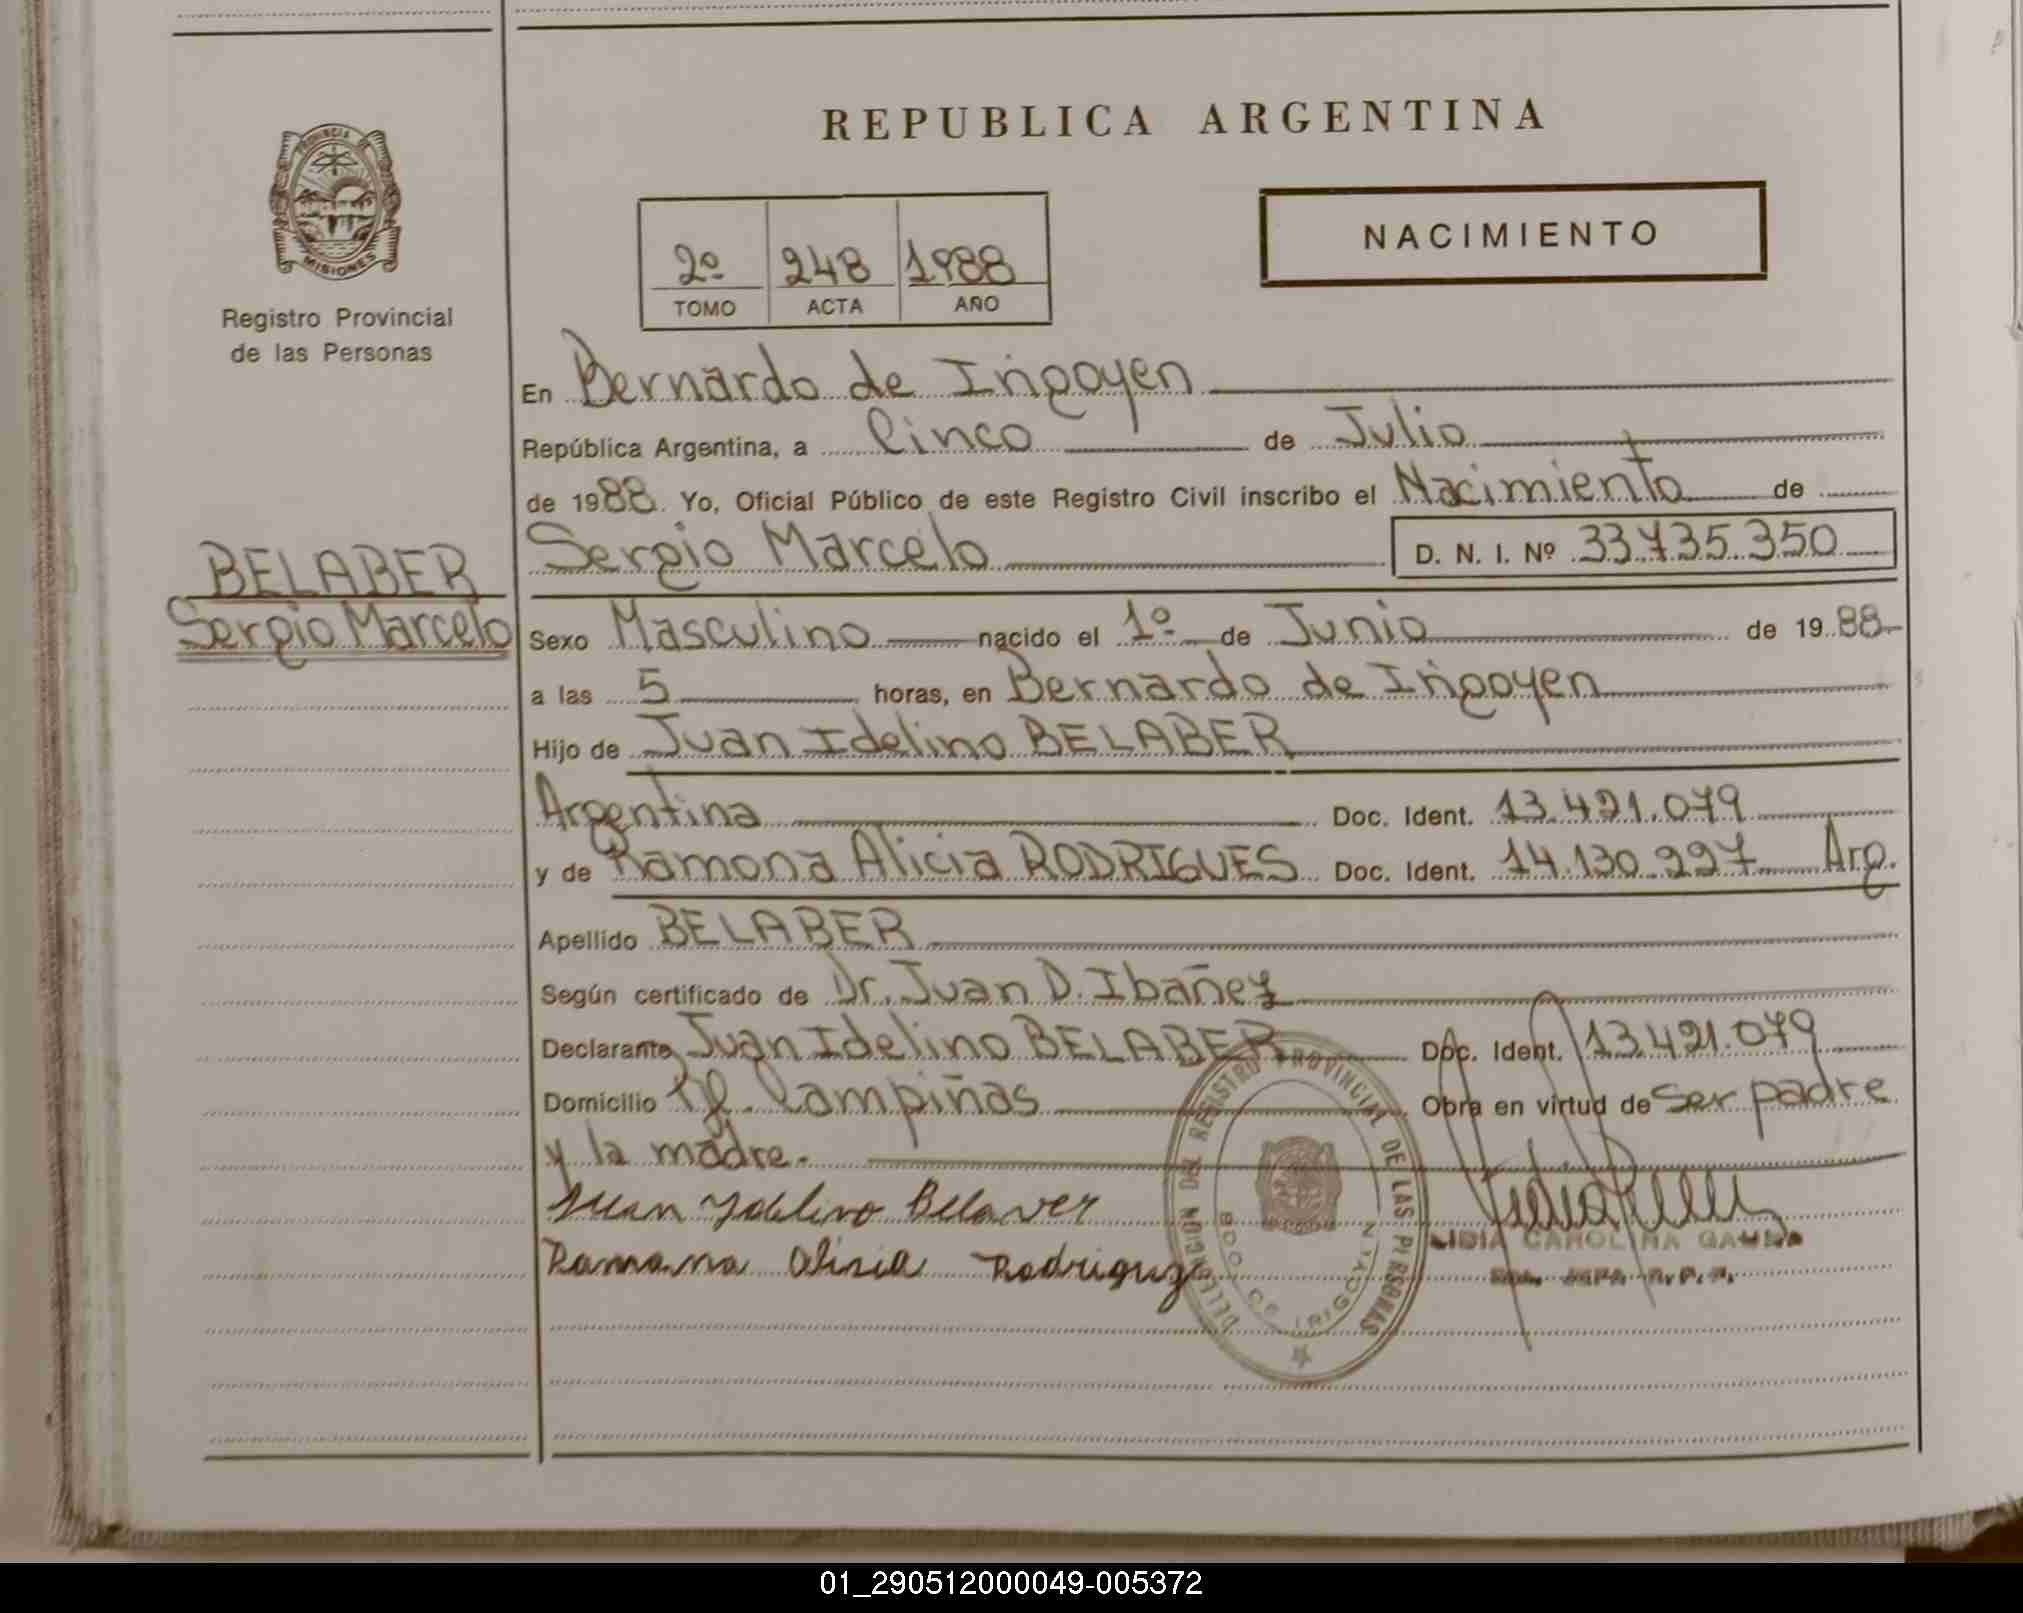 REPUBLICA ARGENTINA
PROVINCIA DE
MISIONES
Registro Provincial
de las Personas
NACIMIENTO
2º 248 1988
TOMO ACTA AÑO
En Bernardo de Irigoyen
República Argentina, a Cinco de Julio
de 1988. Yo, Oficial Público de este Registro Civil inscribo el Nacimiento de
Sergio Marcelo D. N. I. Nº 33.735.350
BELABER
Sergio Marcelo
Sexo Masculino nacido el 1º de Junio de 1988
a las 5 horas, en Bernardo de Irigoyen
Hijo de Juan Idelino BELABER
Argentina Doc. Ident. 13.421.079
y de Ramona Alicia RODRIGUES Doc. Ident. 14.130.227 Arg.
Apellido BELABER
Según certificado de Dr. Juan D. Ibañez
Declarante Juan Idelino BELABER Doc. Ident. 13.421.079
Domicilio Campiñas Obra en virtud de Ser padre
y la madre.
Juan Idelino Belaver
Ramona Alisia Rodriguez
DELEGACION DEL REGISTRO PROVINCIAL DE LAS PERSONAS
BDO. DE IRIGOYEN
LIDIA CAROLINA
01_290512000049-005372